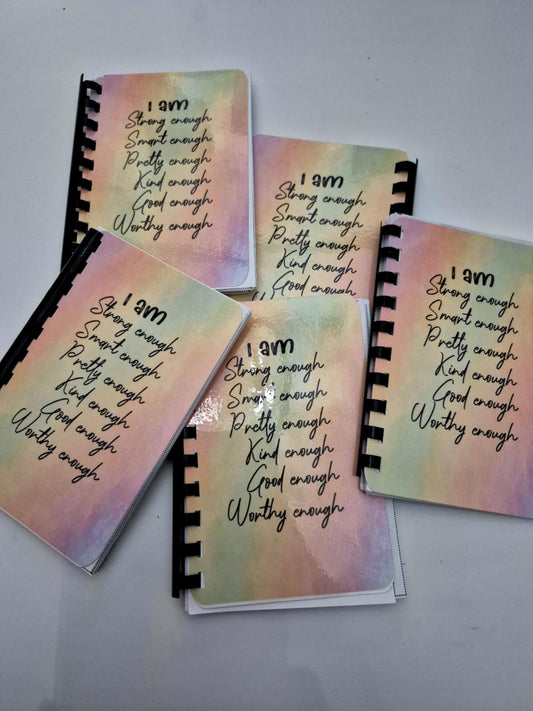 I am
Strong enough
Smart enough
Pretty enough
Kind enough
Good enough
Worthy enough
I am
Strong enough
Smart enough
Pretty enough
Kind enough
Good enough
Worthy enough
I am
Strong enough
Smart enough
Pretty enough
Kind enough
Good enough
Worthy enough
I am
Strong enough
Smart enough
Pretty enough
Kind enough
Good enough
Worthy enough
I am
Strong enough
Smart enough
Pretty enough
Kind enough
Good enough
Worthy enough